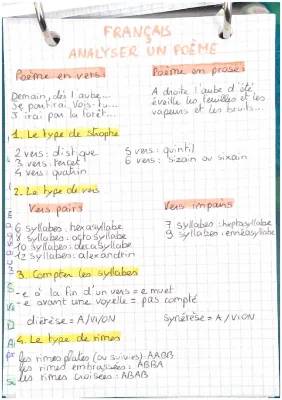 FRANÇAIS
ANALYSER UN POÈME
Poème en vers
Demain, dès l'aube...
Je partirai. Vois-tu...
J'irai par la forêt...
Poème en prose
A droite l'aube d'été
éveille les feuilles et les
vapeurs et les bruits...
1. Le type de strophe
2 vers : distique
3 vers : tercet
4 vers : quatrin
5 vers : quintil
6 vers : sizain ou sixain
2. Le type de vers
Vers pairs
6 syllabes : hexasyllabe
8 syllabes : octosyllabe
10 syllabes : decasyllabe
12 syllabes : alexandrin
Vers impairs
7 syllabes : heptasyllabe
9 syllabes : ennéasyllabe
3. Compter les syllabes
- e à la fin d'un vers = e muet
- e avant une voyelle = pas compté
diérèse = A/VI/ON
synérèse = A/VION
4. Le type de rimes
les rimes plates (ou suivies) : AABB
les rimes embrassées : ABBA
les rimes croisées : ABAB